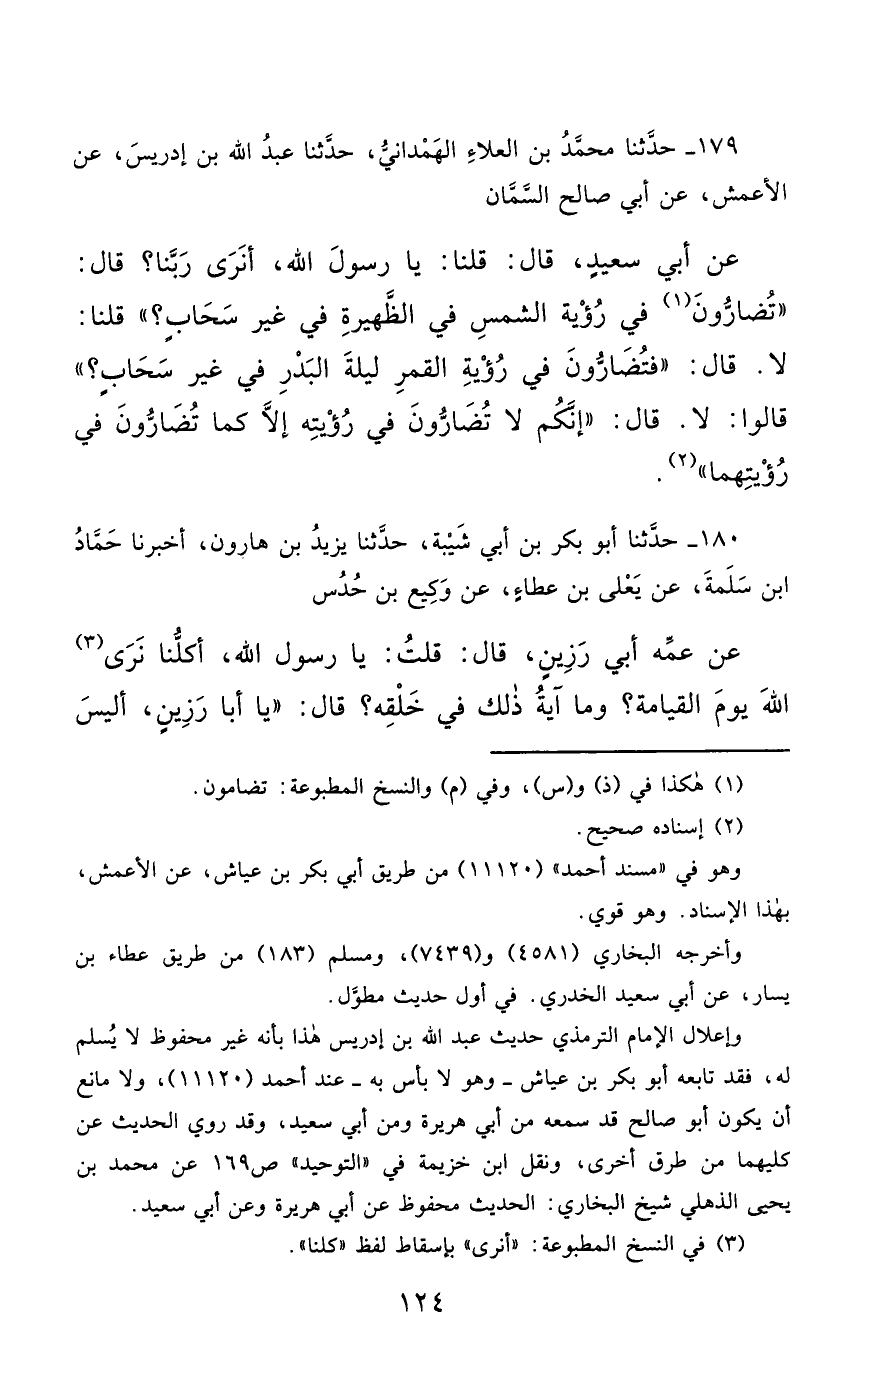 ١٧٩ـ حدَّثنا محمَّدُ بن العلاءِ الهَمْدانيُّ، حدَّثنا عبدُ الله بن إدريسَ، عن
الأعمش، عن أبي صالح السَّمَّان
عن أبي سعيدٍ، قال: قلنا: يا رسولَ الله، أنَرَى رَبَّنا؟ قال:
«تُضارُّونَ(١) في رُؤْية الشمسِ في الظَّهيرةِ في غير سَحَابٍ؟» قلنا:
لا. قال: «فتُضَارُّونَ في رُؤْيةِ القمرِ ليلةَ البَدْرِ في غير سَحَابٍ؟»
قالوا: لا. قال: «إنَّكُم لا تُضَارُّونَ في رُؤْيتِه إلاَّ كما تُضَارُّونَ في
رُؤْيتِهما»(٢).
١٨٠ـ حدَّثنا أبو بكر بن أبي شَيْبة، حدَّثنا يزيدُ بن هارون، أخبرنا حَمَّادُ
ابن سَلَمةَ، عن يَعْلى بن عطاءٍ، عن وَكِيع بن حُدُس
عن عمِّه أبي رَزِينٍ، قال: قلتُ: يا رسول الله، أكلُّنا نَرَى(٣)
اللهَ يومَ القيامة؟ وما آيةُ ذٰلك في خَلْقِه؟ قال: «يا أبا رَزِينٍ، أليسَ
(١) هٰكذا في (ذ) و(س)، وفي (م) والنسخ المطبوعة: تضامون.
(٢) إسناده صحيح.
وهو في «مسند أحمد» (١١١٢٠) من طريق أبي بكر بن عياش، عن الأعمش،
بهٰذا الإسناد. وهو قوي.
وأخرجه البخاري (٤٥٨١) و(٧٤٣٩)، ومسلم (١٨٣) من طريق عطاء بن
يسار، عن أبي سعيد الخدري. في أول حديث مطوَّل.
وإعلال الإمام الترمذي حديث عبد الله بن إدريس هٰذا بأنه غير محفوظ لا يُسلم
له، فقد تابعه أبو بكر بن عياش ـ وهو لا بأس به ـ عند أحمد (١١١٢٠)، ولا مانع
أن يكون أبو صالح قد سمعه من أبي هريرة ومن أبي سعيد، وقد روي الحديث عن
كليهما من طرق أخرى، ونقل ابن خزيمة في «التوحيد» ص١٦٩ عن محمد بن
يحيى الذهلي شيخ البخاري: الحديث محفوظ عن أبي هريرة وعن أبي سعيد.
(٣) في النسخ المطبوعة: «أنرى» بإسقاط لفظ «كلنا».
١٢٤